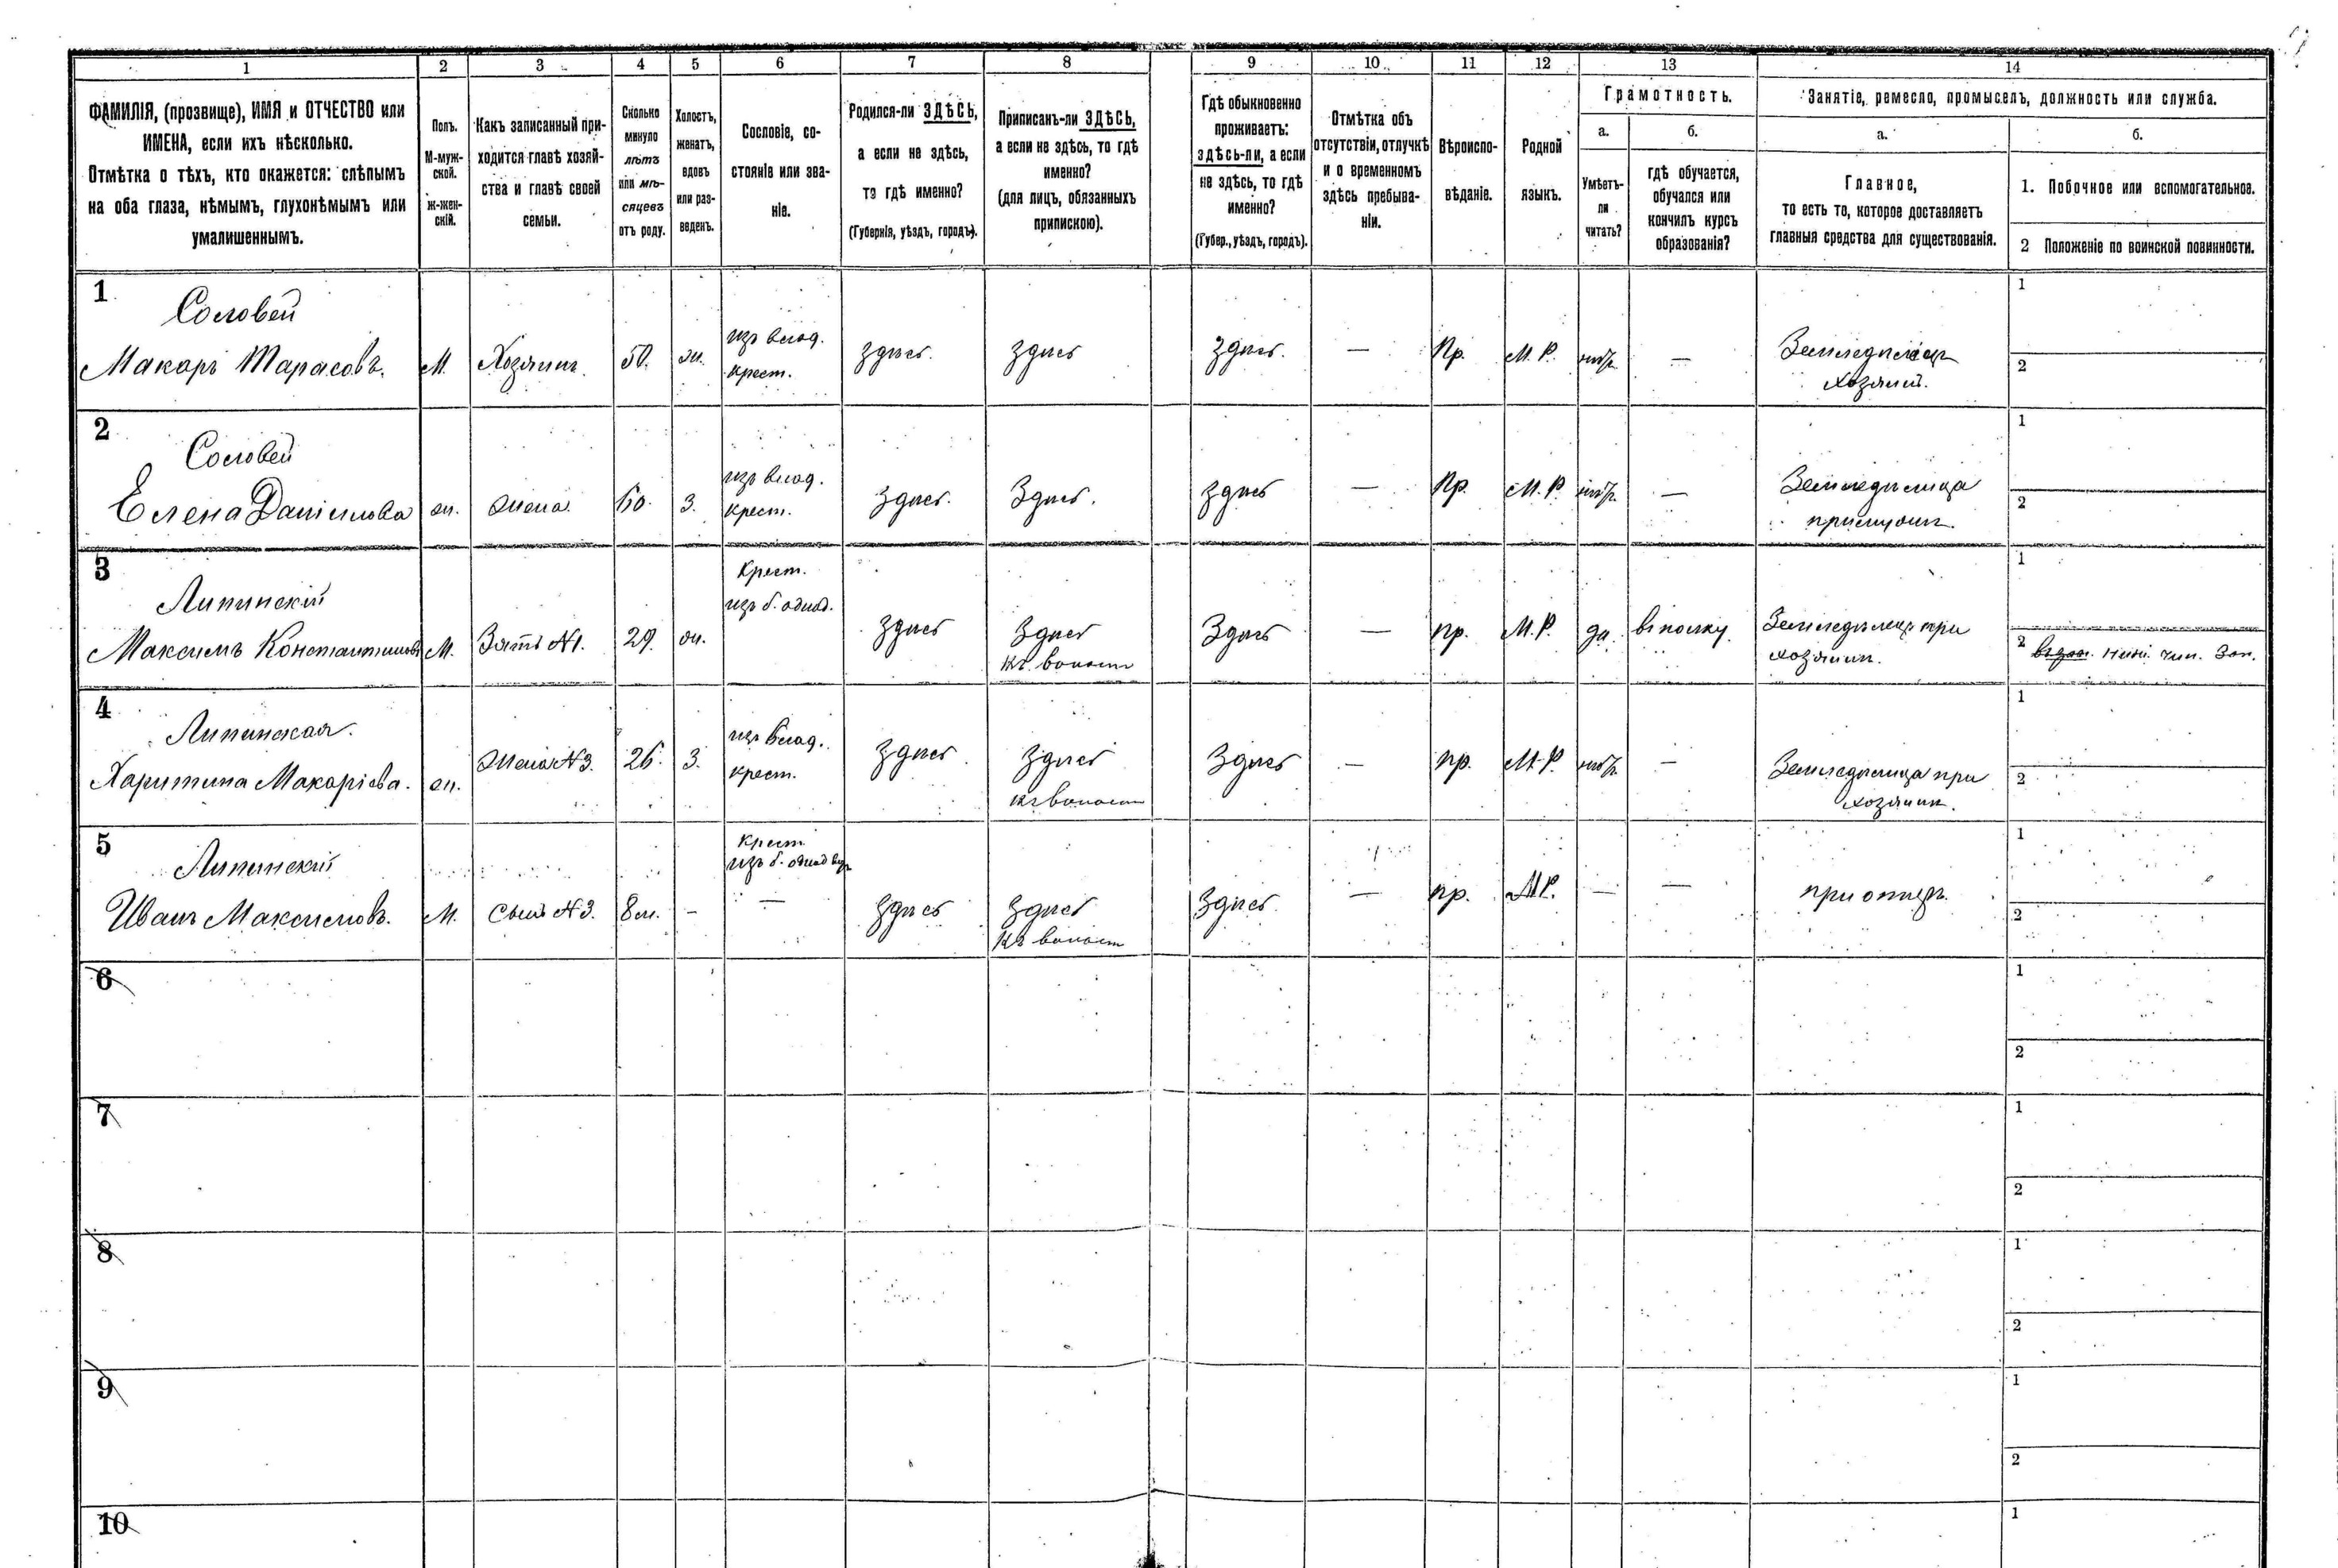 1 2 3 4 5 6 7 8 9 10 11 12 13 14
ФАМИЛІЯ, (прозвище), ИМЯ и ОТЧЕСТВО или
ИМЕНА, если ихъ нѣсколько.
Отмѣтка о тѣхъ, кто окажется: слѣпымъ
на оба глаза, нѣмымъ, глухонѣмымъ или
умалишеннымъ.
Полъ.
М-муж-
ской.
ж-жен-
скій.
Какъ записанный при-
ходится главѣ хозяй-
ства и главѣ своей
семьи.
Сколько
минуло
лѣтъ
или мѣ-
сяцевъ
отъ роду.
Холостъ,
женатъ,
вдовъ
или раз-
веденъ.
Сословіе, со-
стояніе или зва-
ніе.
Родился-ли ЗДѢСЬ,
а если не здѣсь,
то гдѣ именно?
(Губернія, уѣздъ, городъ).
Приписанъ-ли ЗДѢСЬ,
а если не здѣсь, то гдѣ
именно?
(для лицъ, обязанныхъ
припискою).
Гдѣ обыкновенно
проживаетъ:
здѣсь-ли, а если
не здѣсь, то гдѣ
именно?
(Губер., уѣздъ, городъ).
Отмѣтка объ
отсутствіи, отлучкѣ
и о временномъ
здѣсь пребыва-
ніи.
Вѣроиспо-
вѣданіе.
Родной
языкъ.
Грамотность.
а.
Умѣетъ-
ли
читать?
б.
гдѣ обучается,
обучался или
кончилъ курсъ
образованія?
Занятіе, ремесло, промыселъ, должность или служба.
а.
Главное,
то есть то, которое доставляетъ
главныя средства для существованія.
б.
1. Побочное или вспомогательное.
2 Положеніе по воинской повинности.
1
Соловей
Макаръ Тарасовъ. М. Хозяинъ 50. ж. изъ влад.
крест. здѣсь. здѣсь здѣсь. — Пр. М. Р. нѣтъ — Земледѣлецъ
хозяинъ.
1
2
2
Соловей
Елена Даніилова ж. жена. 60. з. изъ влад.
крест. здѣсь. Здѣсь. здѣсь — Пр. М. Р. нѣтъ — Земледѣлица
при мужѣ.
1
2
3
Липинскій
Максимъ Константиновъ М. Зять №1. 29. ж. Крест.
изъ б. однод. здѣсь Здѣсь
къ волост Здѣсь — пр. М.Р. да. въ полку. Земледѣлецъ при
хозяинѣ.
1
2 ниж. чин. Зап.
4
Липинская.
Харитина Макаріева. ж. жена №3. 26. з. изъ влад.
крест. здѣсь здѣсь
къ волост Здѣсь — пр. М.Р. нѣтъ — Земледѣлица при
хозяинѣ.
1
2
5
Липинскій
Иванъ Максимовъ. М. сынъ №3. 8 м. — Крест.
изъ б. однодвор
— здѣсь здѣсь
къ волост Здѣсь — пр. М.Р. — — при отцѣ.
1
2
6
1
2
7
1
2
8
1
2
9
1
2
10
1